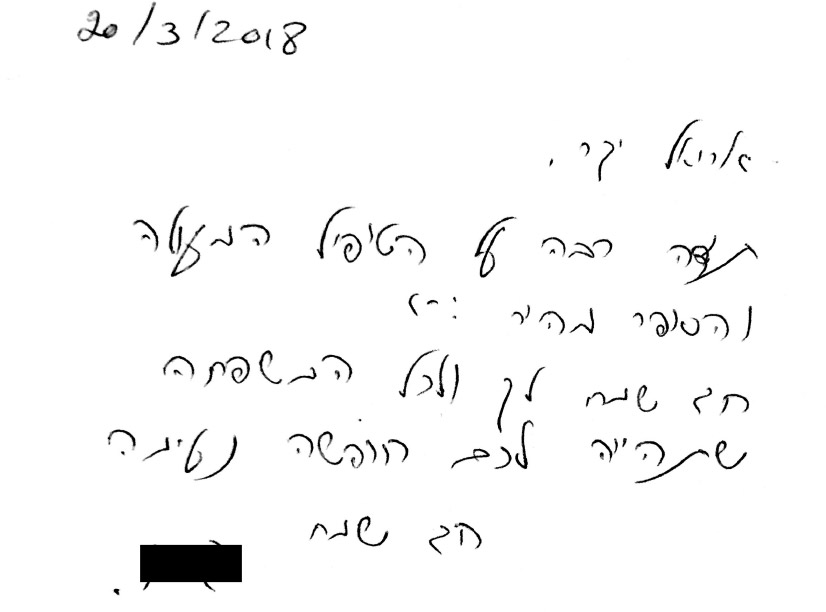 20/3/2018
אריאל יקר,
תודה רבה על הטיפול המעולה
והסופר מהיר :-)
חג שמח לך ולכל המשפחה
שתהייה לכם חופשה נעימה
חג שמח